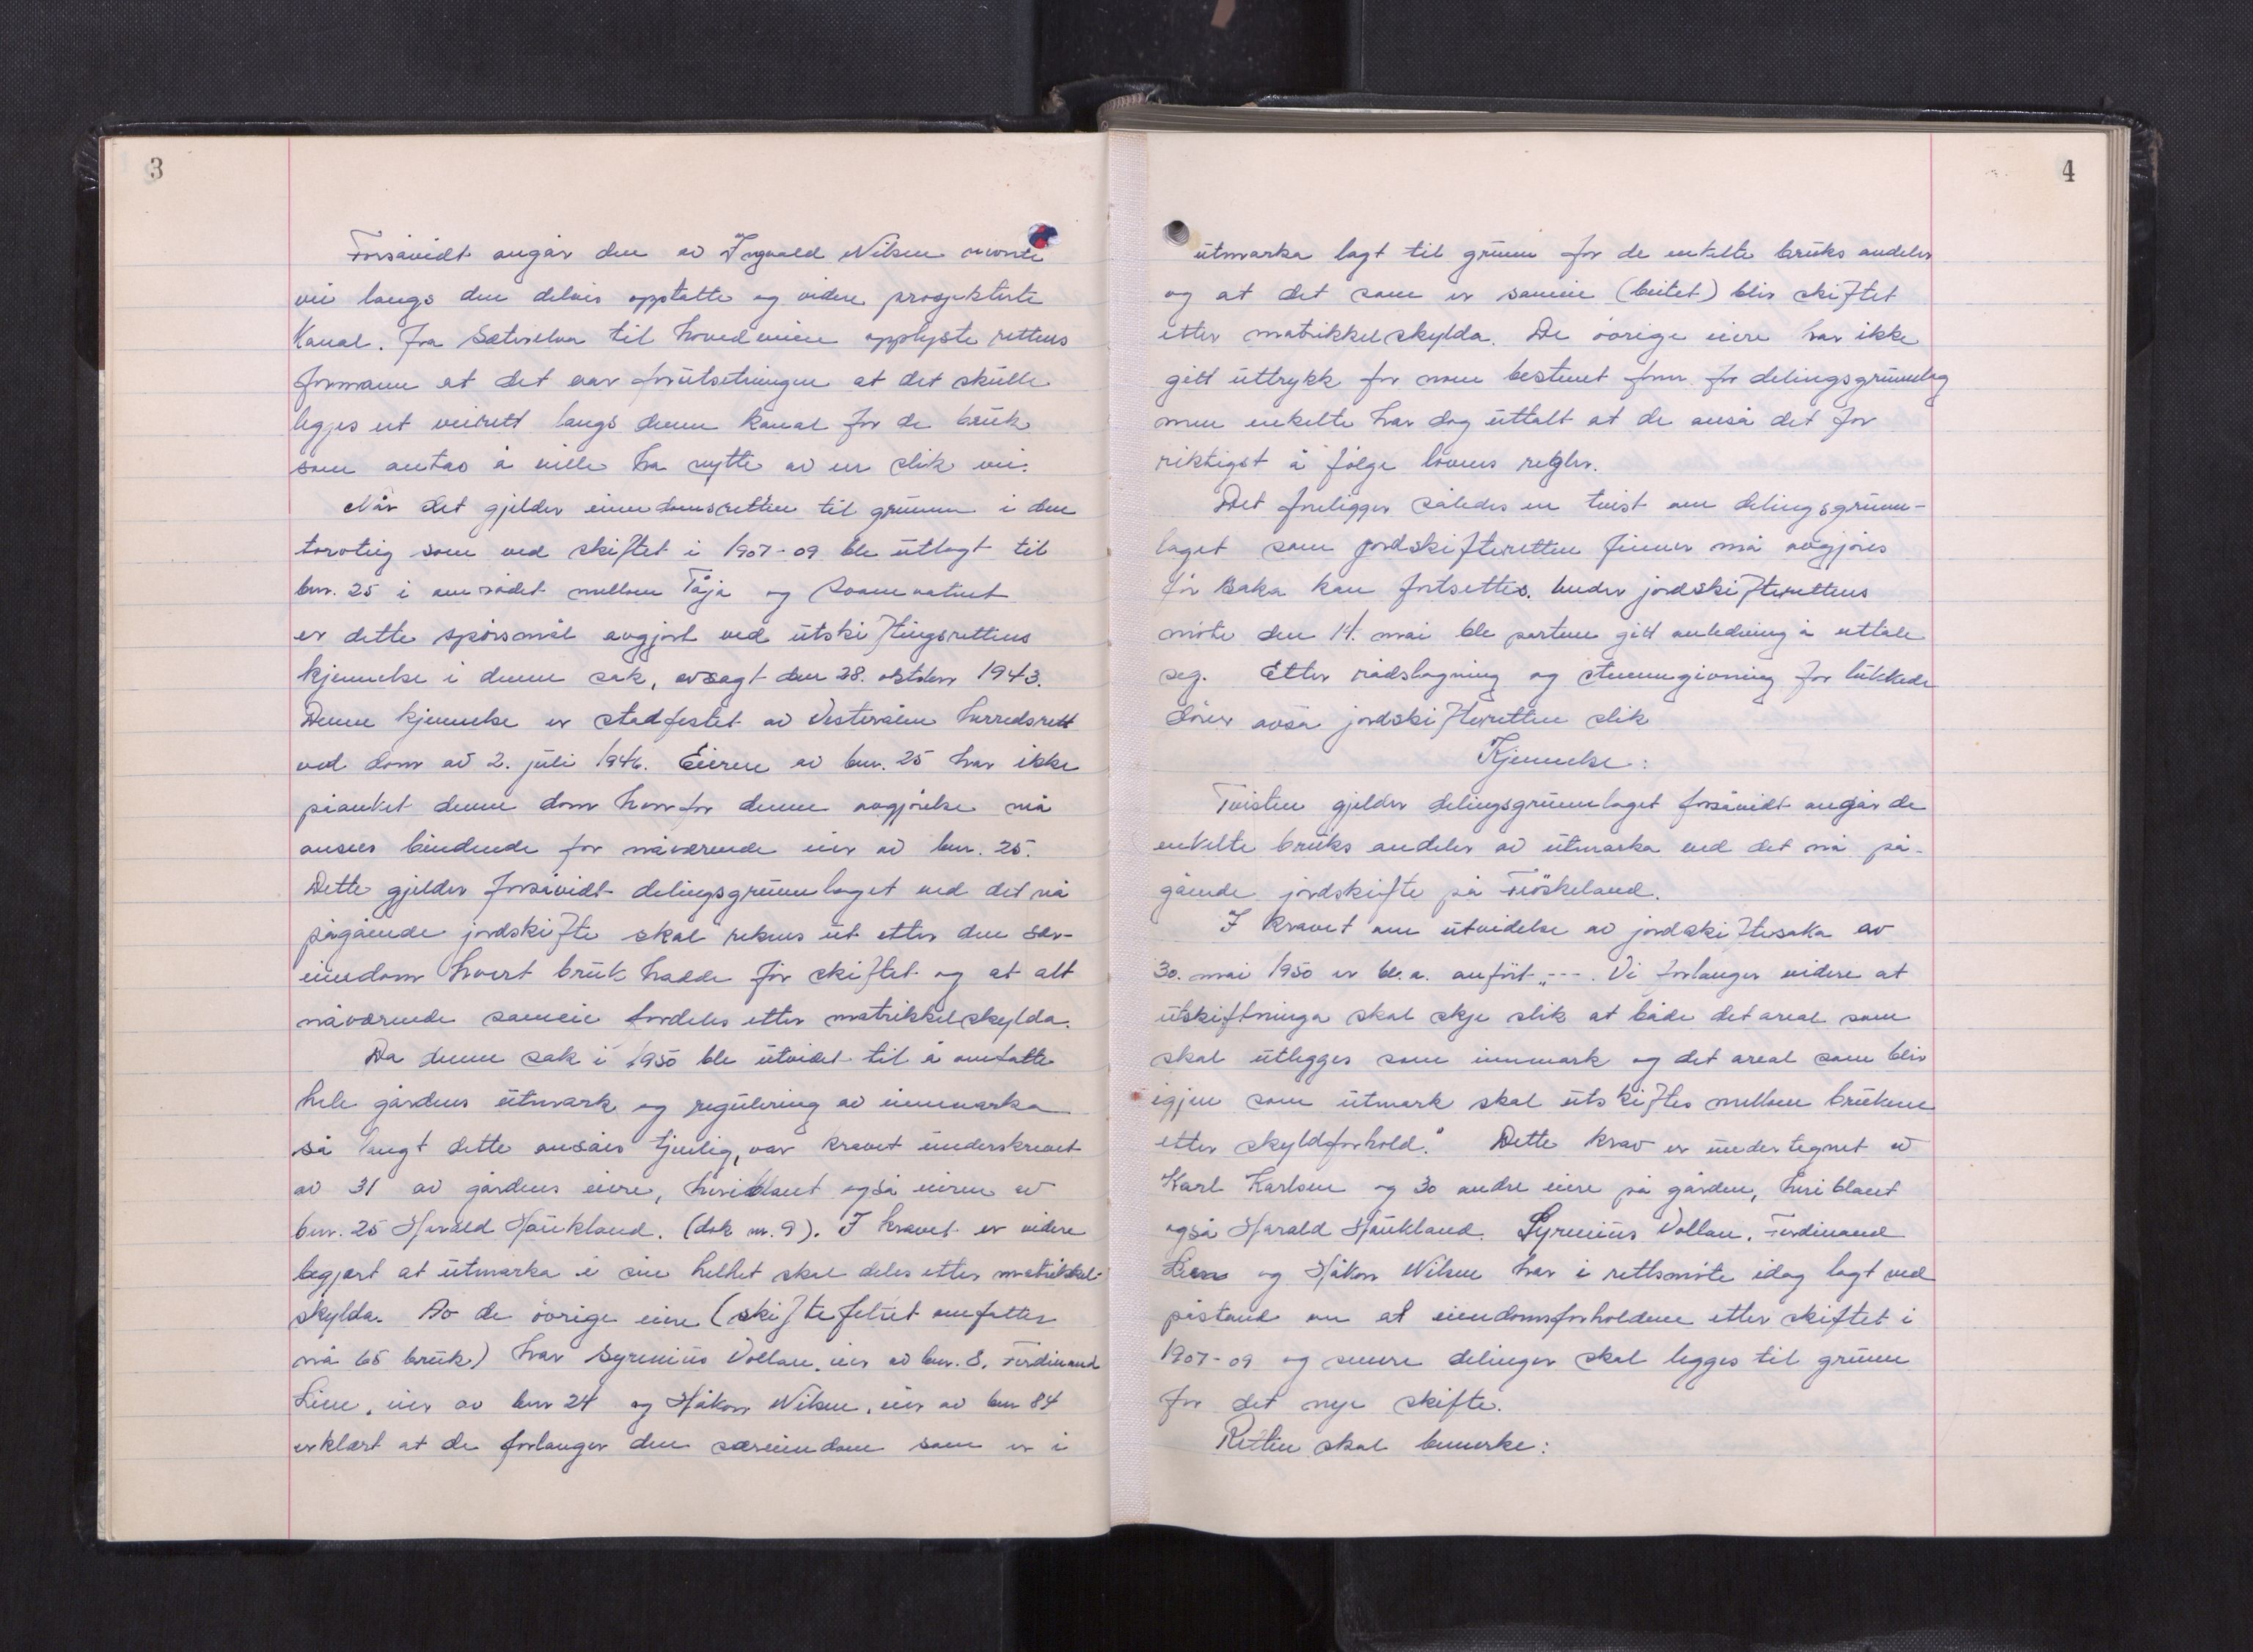 3
Forsåvidt angår den av Ingvald Nilsen nevnte
vei langs den delvis opptatte og videre prosjekterte
Kanal. fra Sæterelva til hovedveien opplyste rettens
formann at det var forutsetningen at det skulle
legges ut veirett langs denne kanal for de bruk
som antas å ville ha nytte av en slik vei.
Når det gjelder eiendomsretten til grunnen i den
torvteig som ved skiftet i 1907-09 ble utlagt til
bnr. 25 i området mellom Tåja og Svanevatnet
er dette spørsmål avgjort ved utskiftingsrettens
kjennelse i denne sak, avsagt den 28. oktober 1943.
Denne kjennelse er stadfestet av Vesterålen herredsrett
ved dom av 2. juli 1946. Eieren av bnr. 25 har ikke
påanket denne dom hvorfor denne avgjørelse må
ansees bindende for nåværende eier av bnr. 25.
Dette gjelder forsåvidt delingsgrunnlaget ved det nå
pågående jordskifte skal reknes ut etter den sær-
eiendom hvert bruk hadde før skiftet og at alt
nåværende sameie fordeles etter matrikkelskylda.
Da denne sak i 1950 ble utvidet til å omfatte
hele gårdens utmark og regulering av innmarka
så langt dette ansåes tjenlig, var kravet underskrevet
av 31 av gårdens eiere, heriblant også eieren av
bnr. 25 Harald Haukland. (dok nr. 9). I kravet er videre
begjært at utmarka i sin helhet skal deles etter matrikkel-
skylda. Av de øvrige eiere (skiftefeltet omfatter
nå 65 bruk) har Syrenius Vollan, eier av bnr. 8, Ferdinand
Lien, eier av bnr 24 og Håkon Nilsen, eier av bnr 84
erklært at de forlanger den særeiendom som er i
4
utmarka lagt til grunn for de enkelte bruks andeler
og at det som er sameie (beitet) blir skiftet
etter matrikkelskylda. De øvrige eiere har ikke
gitt uttrykk for noen bestemt form for delingsgrunnlag
men enkelte har dog uttalt at de anså det for
riktigst å følge lovens regler.
Det foreligger således en tvist om delingsgrunn-
laget som jordskifteretten finner må avgjøres
før saka kan fortsettes. Under jordskifterettens
møte den 14. mai ble partene gitt anledning å uttale
seg. Etter rådslagning og stemmegivning for lukkede
dører avsa jordskifteretten slik
Kjennelse:
Tvisten gjelder delingsgrunnlaget forsåvidt angår de
enkelte bruks andeler av utmarka ved det nå på-
gående jordskifte på Frøskeland.
I kravet om utvidelse av jordskiftesaka av
30. mai 1950 er bl.a. anført „---. Vi forlanger videre at
utskiftninga skal skje slik at både det areal som
skal utlegges som innmark og det areal som blir
igjen som utmark skal utskiftes mellom brukene
etter skyldforhold." Dette krav er undertegnet av
Karl Karlsen og 30 andre eiere på gården, heriblant
også Harald Haukland. Syrenius Vollan, Ferdinand
Lien og Håkon Nilsen har i rettsmøte idag lagt ned
påstand om at eiendomsforholdene etter skiftet i
1907-09 og senere delinger skal legges til grunn
for det nye skifte.
Retten skal bemerke: